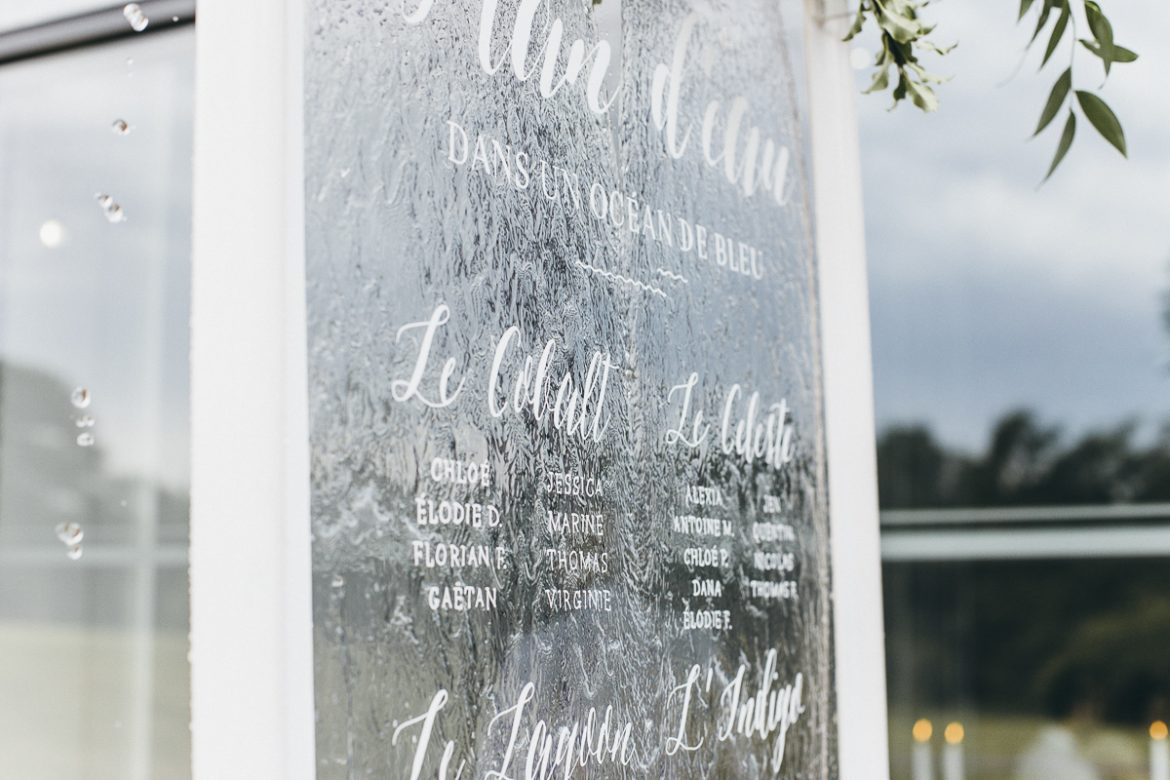 d'eau
DANS UN OCÉAN DE BLEU
Le Cobalt
CHLOÉ
ÉLODIE D.
FLORIAN F.
GAËTAN
JESSICA
MARINE
THOMAS
VIRGINIE
Le Céleste
ALEXIA
ANTOINE M.
CHLOÉ P.
DANA
ÉLODIE F.
JEN
QUENTIN
NICOLAS
THOMAS F.
Le Lagoon
L'Indigo